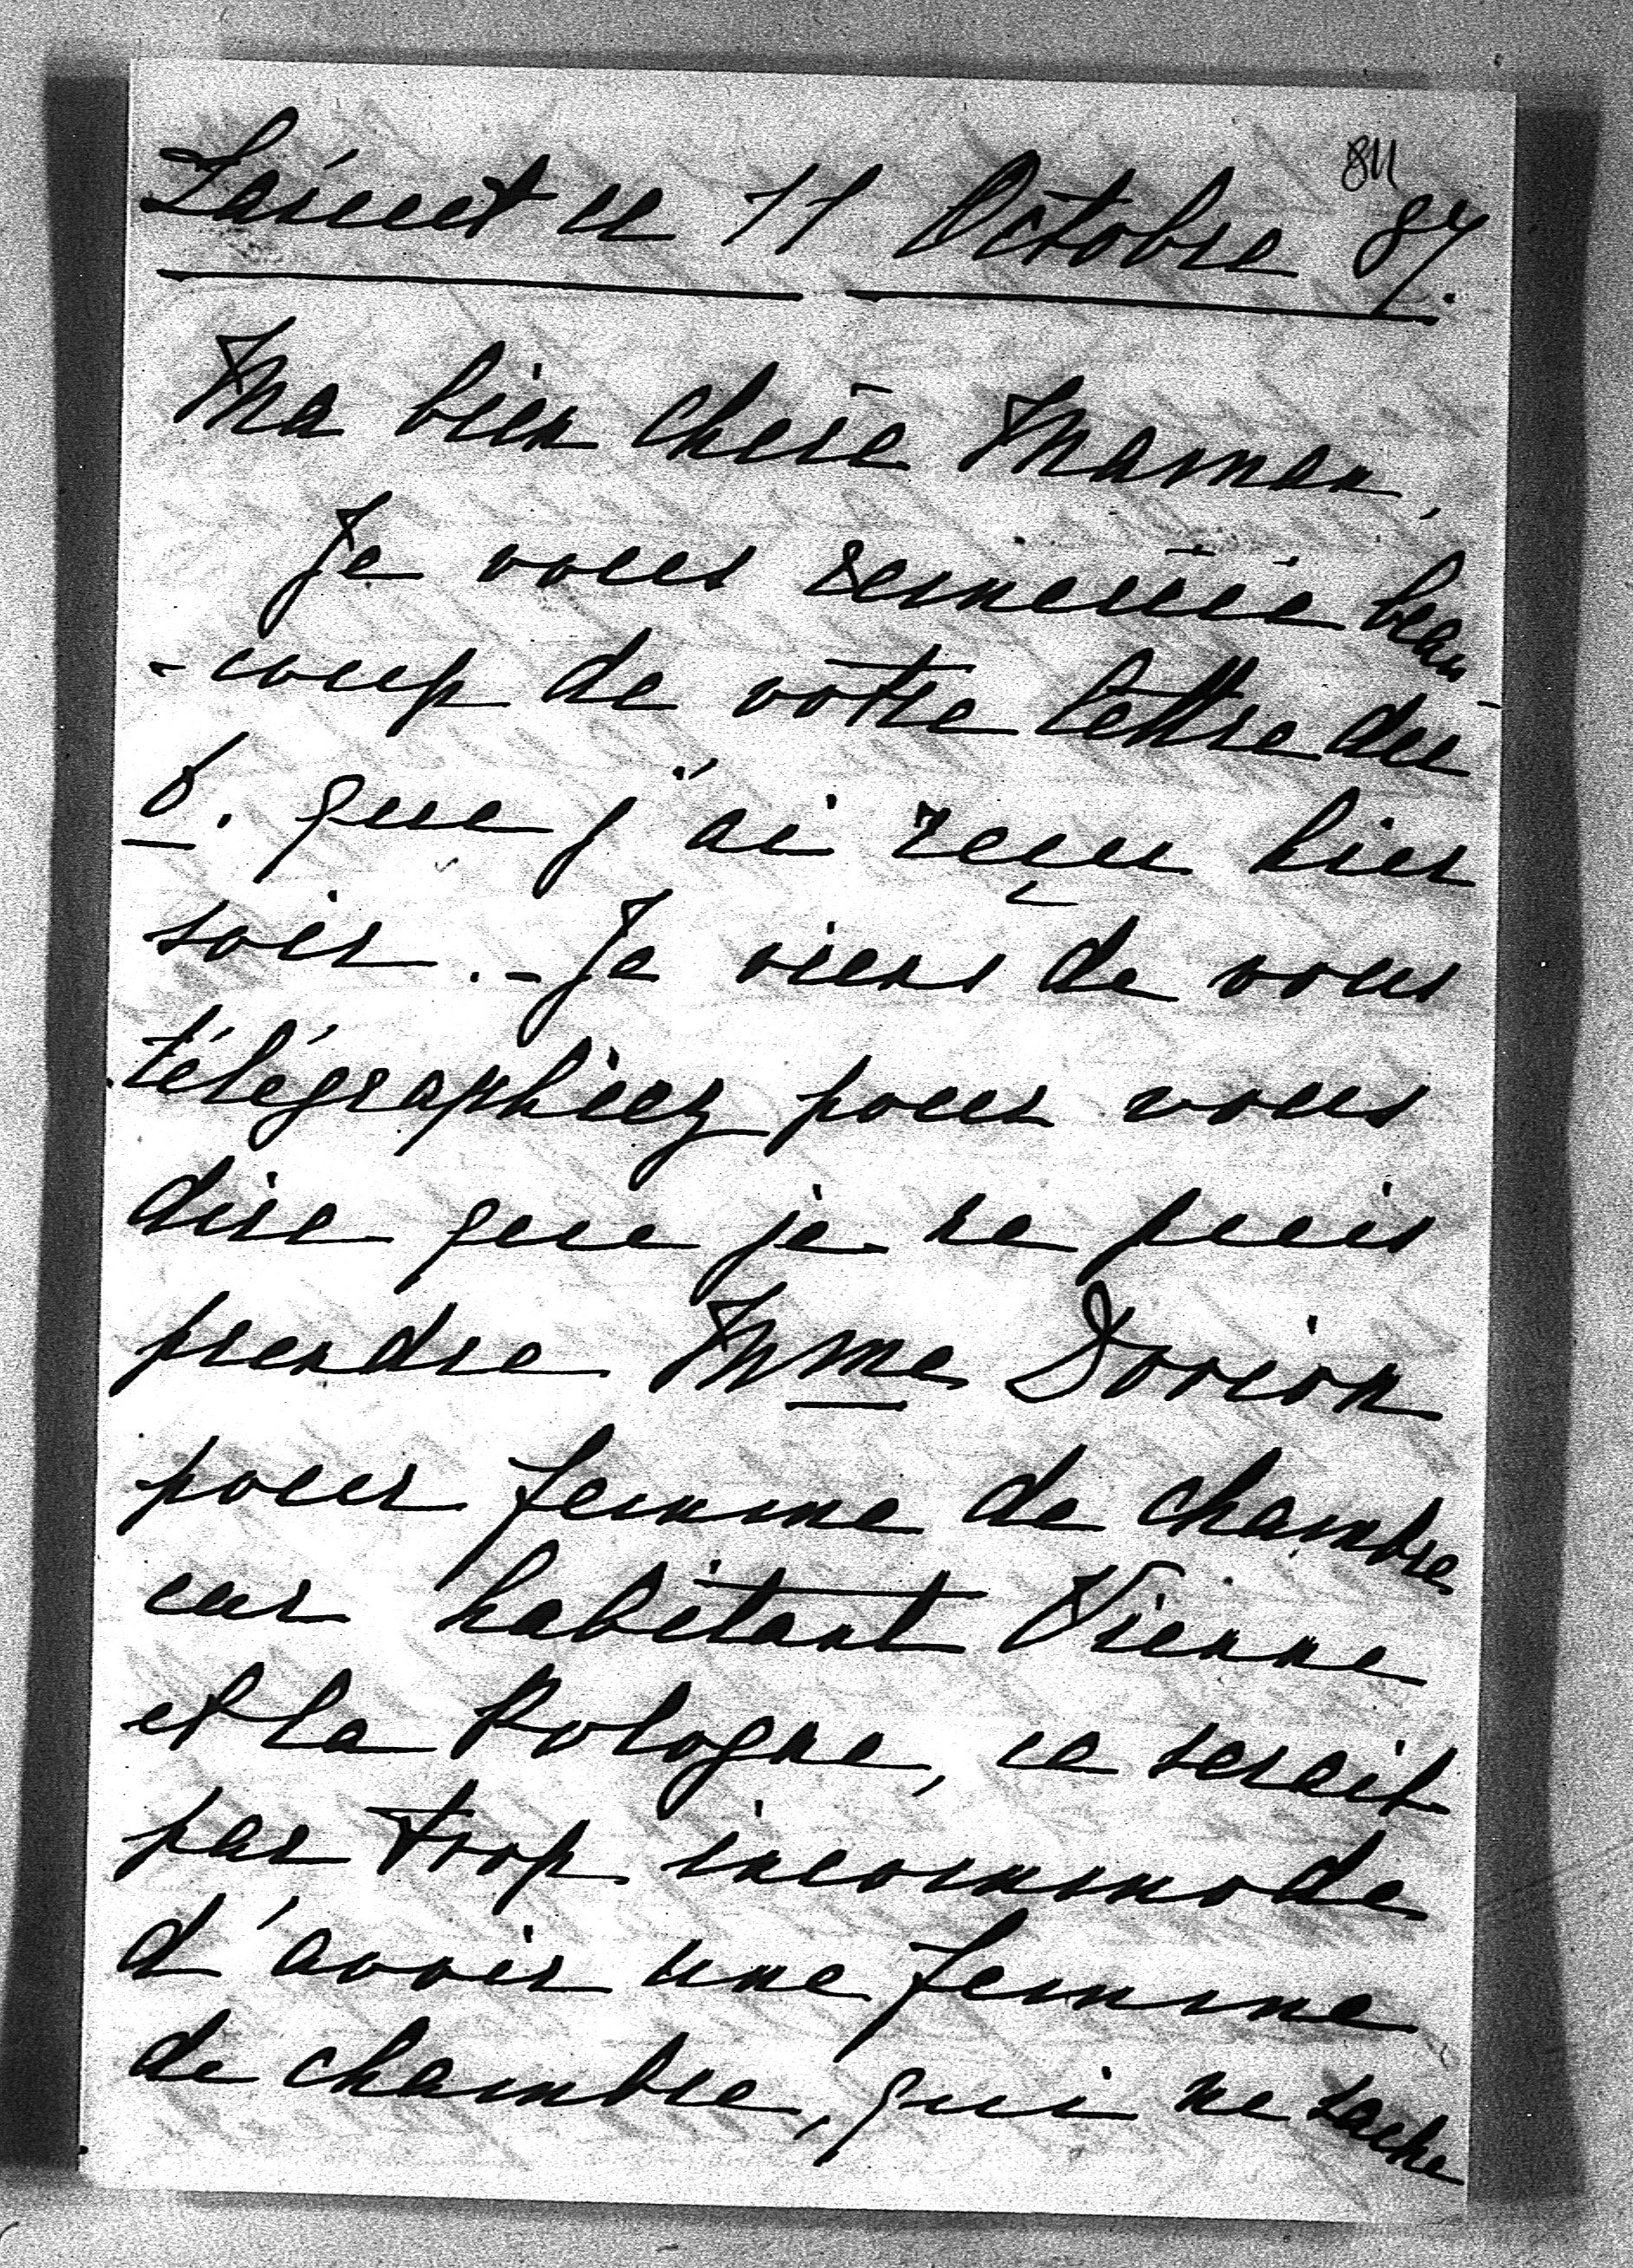 84
Łańcut ce 11 Octobre 87.
Ma bien chère Maman,
Je vous remercie beau
-coup de votre lettre du
8. que j'ai reçu hier
soir. - Je viens de vous
télégraphiez pour vous
dire que je ne puis
prendre Mme Dorion
pour femme de chambre
car habitant Vienne
et la Pologne, ce serait
par trop incommode
d'avoir une femme
de chambre, qui ne sache